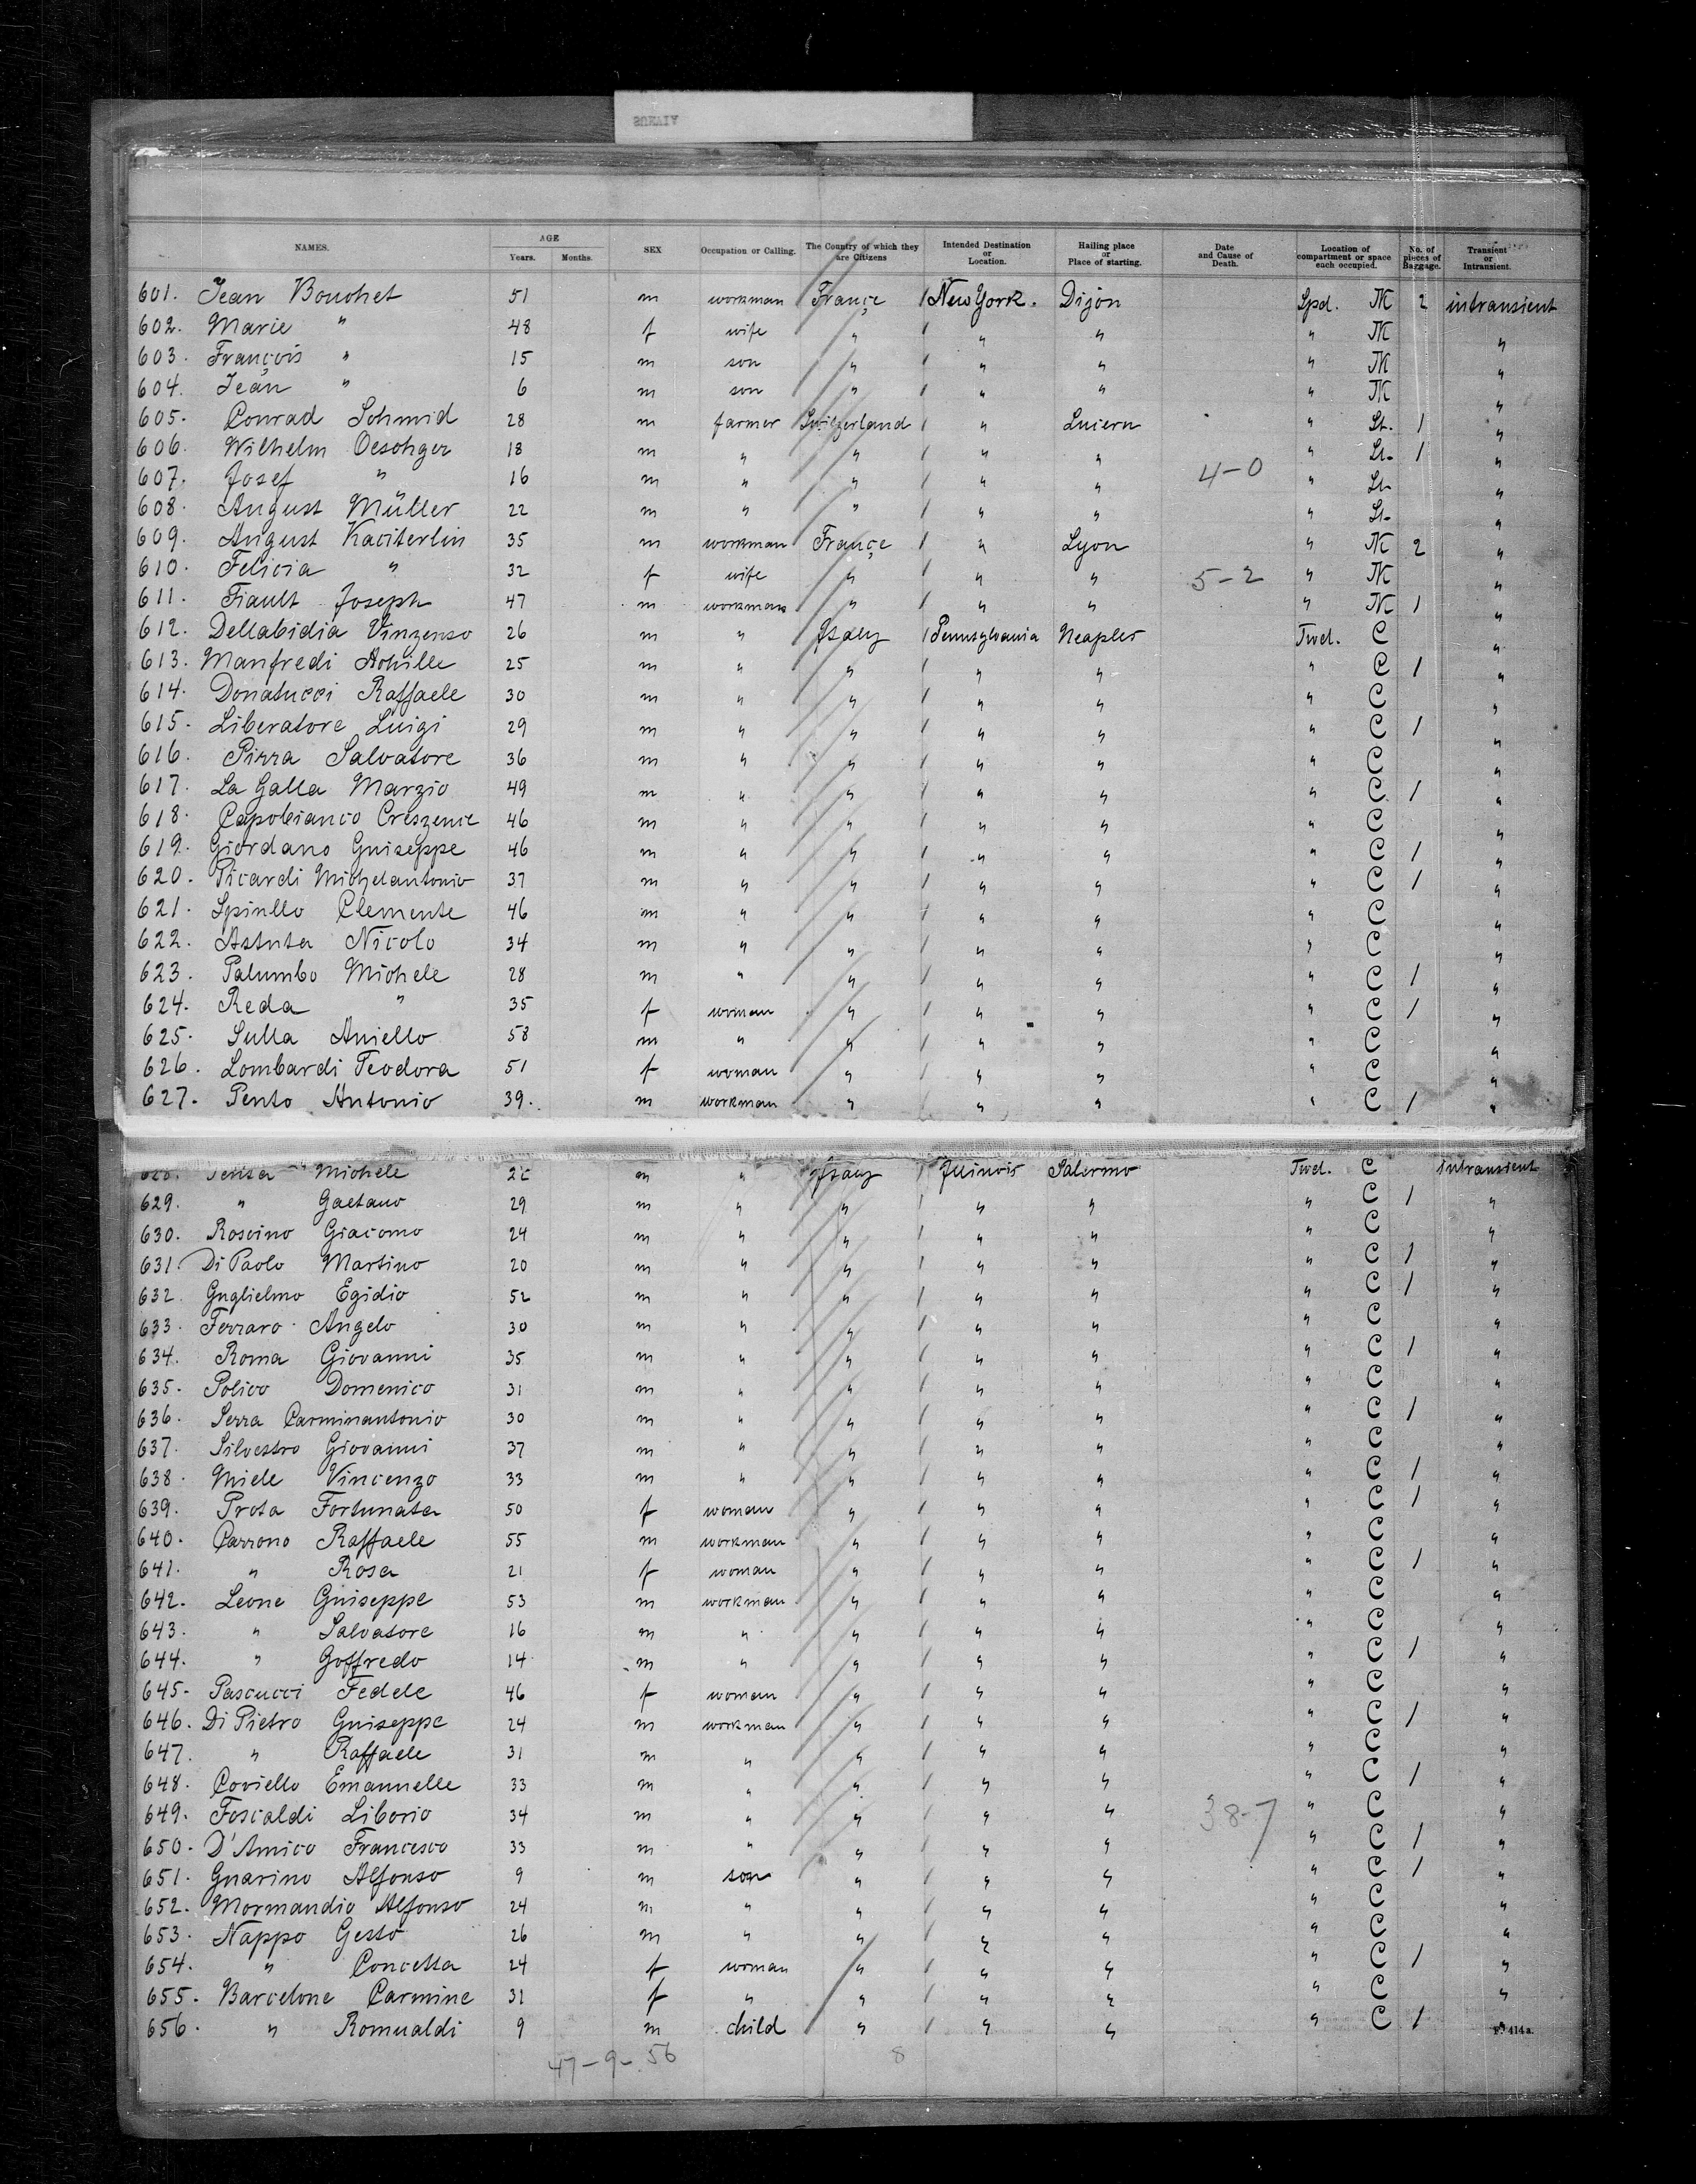 NAMES. AGE Years. Months. SEX Occupation or Calling. The Country of which they are Citizens Intended Destination or Location. Hailing place or Place of starting. Date and Cause of Death. Location of compartment or space each occupied. No. of pieces of Baggage. Transient or Intransient.
601. Jean Bouchet 51 m workman France / New York. Dijon Spd. 2 intransient
602. Marie " 48 f wife " / " " " "
603. François " 15 m son " / " " " "
604. Jean " 6 m son " / " " " "
605. Conrad Schmid 28 m farmer Switzerland / " Luzern " St. 1 "
606. Wilhelm Oeschger 18 m " " / " " " St. 1 "
607. Josef " 16 m " " / " " 4-0 " St. "
608. August Müller 22 m " " / " " " St. "
609. August 35 m workman France / " Lyon " 2 "
610. Felicia " 32 f wife " / " " 5-2 " "
611. Fiault Joseph 47 m workman " / " " " 1 "
612. Dellabidia Vinzenso 26 m " Italy / Pennsylvania Neaples Twd. C "
613. Manfredi Achille 25 m " " / " " " C 1 "
614. Donatucci Raffaele 30 m " " / " " " C "
615. Liberatore Luigi 29 m " " / " " " C 1 "
616. Pirra Salvatore 36 m " " / " " " C "
617. La Galla Marzio 49 m " " / " " " C 1 "
618. Capobianco 46 m " " / " " " C "
619. Giordano Guiseppe 46 m " " / " " " C 1 "
620. Picardi Michelantonio 37 m " " / " " " C 1 "
621. Spinllo Clemente 46 m " " / " " " C "
622. Astuta Nicolo 34 m " " / " " " C "
623. Palumbo Michele 28 m " " / " " " C 1 "
624. Reda " 35 f woman " / " " " C 1 "
625. Sulla Aniello 58 m " " / " " " C "
626. Lombardi Teodora 51 f woman " / " " " C "
627. Pento Antonio 39. m workman " / " " " C 1 "
Michele m " Italy / Illinois Salermo Twd. C intransient
629. " Gaetano 29 m " " / " " " C 1 "
630. Roscino Giacomo 24 m " " / " " " C "
631. Di Paolo Martino 20 m " " / " " " C 1 "
632. Guglielmo Egidio 52 m " " / " " " C 1 "
633. Ferraro Angelo 30 m " " / " " " C "
634. Roma Giovanni 35 m " " / " " " C 1 "
635. Polico Domenico 31 m " " / " " " C "
636. Serra Carminantonio 30 m " " / " " " C 1 "
637. Silvestro Giovanni 37 m " " / " " " C "
638. Miele Vincenzo 33 m " " / " " " C 1 "
639. Prota Fortunata 50 f woman " / " " " C 1 "
640. Carrono Raffaele 55 m workman " / " " " C "
641. " Rosa 21 f woman " / " " " C 1 "
642. Leone Guiseppe 53 m workman " / " " " C "
643. " Salvatore 16 m " " / " " " C "
644. " Goffredo 14 m " " / " " " C 1 "
645. Pascucci Fedele 46 f woman " / " " " C "
646. Di Pietro Guiseppe 24 m workman " / " " " C 1 "
647. " Raffaele 31 m " " / " " " C "
648. Coviello Emannelle 33 m " " / " " " C 1 "
649. Foscaldi Liborio 34 m " " / " " 38-7 " C "
650. D'Amico Francesco 33 m " " / " " " C 1 "
651. Guarino Alfonso 9 m son " / " " " C 1 "
652. Mormandio Alfonso 24 m " " / " " " C "
653. Nappo Gesto 26 m " " / " " " C "
654. " Concetta 24 f woman " / " " " C 1 "
655. Barcelone Carmine 31 f " " / " " " C "
656. " Romualdi 9 m child " / " " " C 1 "
F. 414a.
47-9-56 8